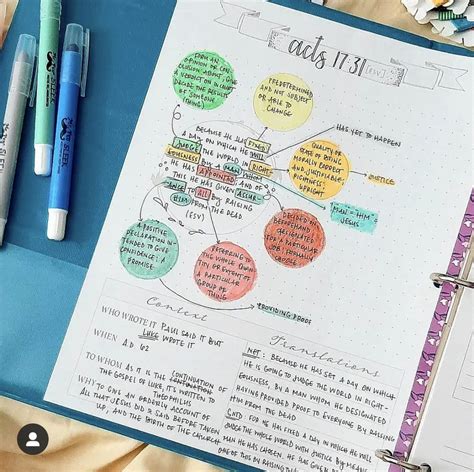 acts 17:31 (ESV)
FORM AN
OPINION OR CON-
CLUSION ABOUT; GIVE
A VERDICT ON IN COURT
DECIDE THE RESULTS
OF SOMEONE
THING
PREDETERMINED
AND NOT SUBJECT
OR ABLE TO
CHANGE
BECAUSE HE HAS FIXED
A DAY ON WHICH HE WILL
JUDGE THE WORLD IN RIGHT-
EOUSNESS BY A MAN WHOM
HE HAS APPOINTED; AND OF
THIS HE HAS GIVEN ASSUR-
ANCE TO ALL BY RAISING
HIM FROM THE DEAD
(ESV)
HAS YET TO HAPPEN
QUALITY OR
STATE OF BEING
MORALLY CORRECT
AND JUSTIFIABLE;
RIGHTNESS;
UPRIGHT
JUSTICE
"MAN = HIM" =
JESUS
DECIDED
BEFOREHAND
DESIGNATED
FOR A PARTICULAR
JOB
A POSITIVE
DECLARATION IN-
TENDED TO GIVE
CONFIDENCE; A
PROMISE
REFERRING TO
THE WHOLE QUAN-
TITY OR EXTENT OF
A PARTICULAR
GROUP OR
THING
PROVIDING PROOF
Context
WHO WROTE IT PAUL SAID IT BUT
LUKE WROTE IT
WHEN A.D. 62
TO WHOM AS IT IS THE CONTINUATION OF
THE GOSPEL OF LUKE, IT'S WRITTEN TO
THEOPHILUS
WHY TO GIVE AN ORDERLY ACCOUNT OF
ALL THAT JESUS DID & SAID BEFORE TAKEN
UP, AND THE BIRTH OF THE CHURCH
Translations
NET: BECAUSE HE HAS SET A DAY ON WHICH
HE IS GOING TO JUDGE THE WORLD IN RIGHT-
EOUSNESS, BY A MAN WHOM HE DESIGNATED
HAVING PROVIDED PROOF TO EVERYONE BY RAISING
HIM FROM THE DEAD.
GWT: GOD HAS FIXED A DAY ON WHICH HE WILL
JUDGE THE WORLD WITH JUSTICE BY
MAN HE HAS CHOSEN. HE HAS GIVEN
ONE OF THIS BY RAISING